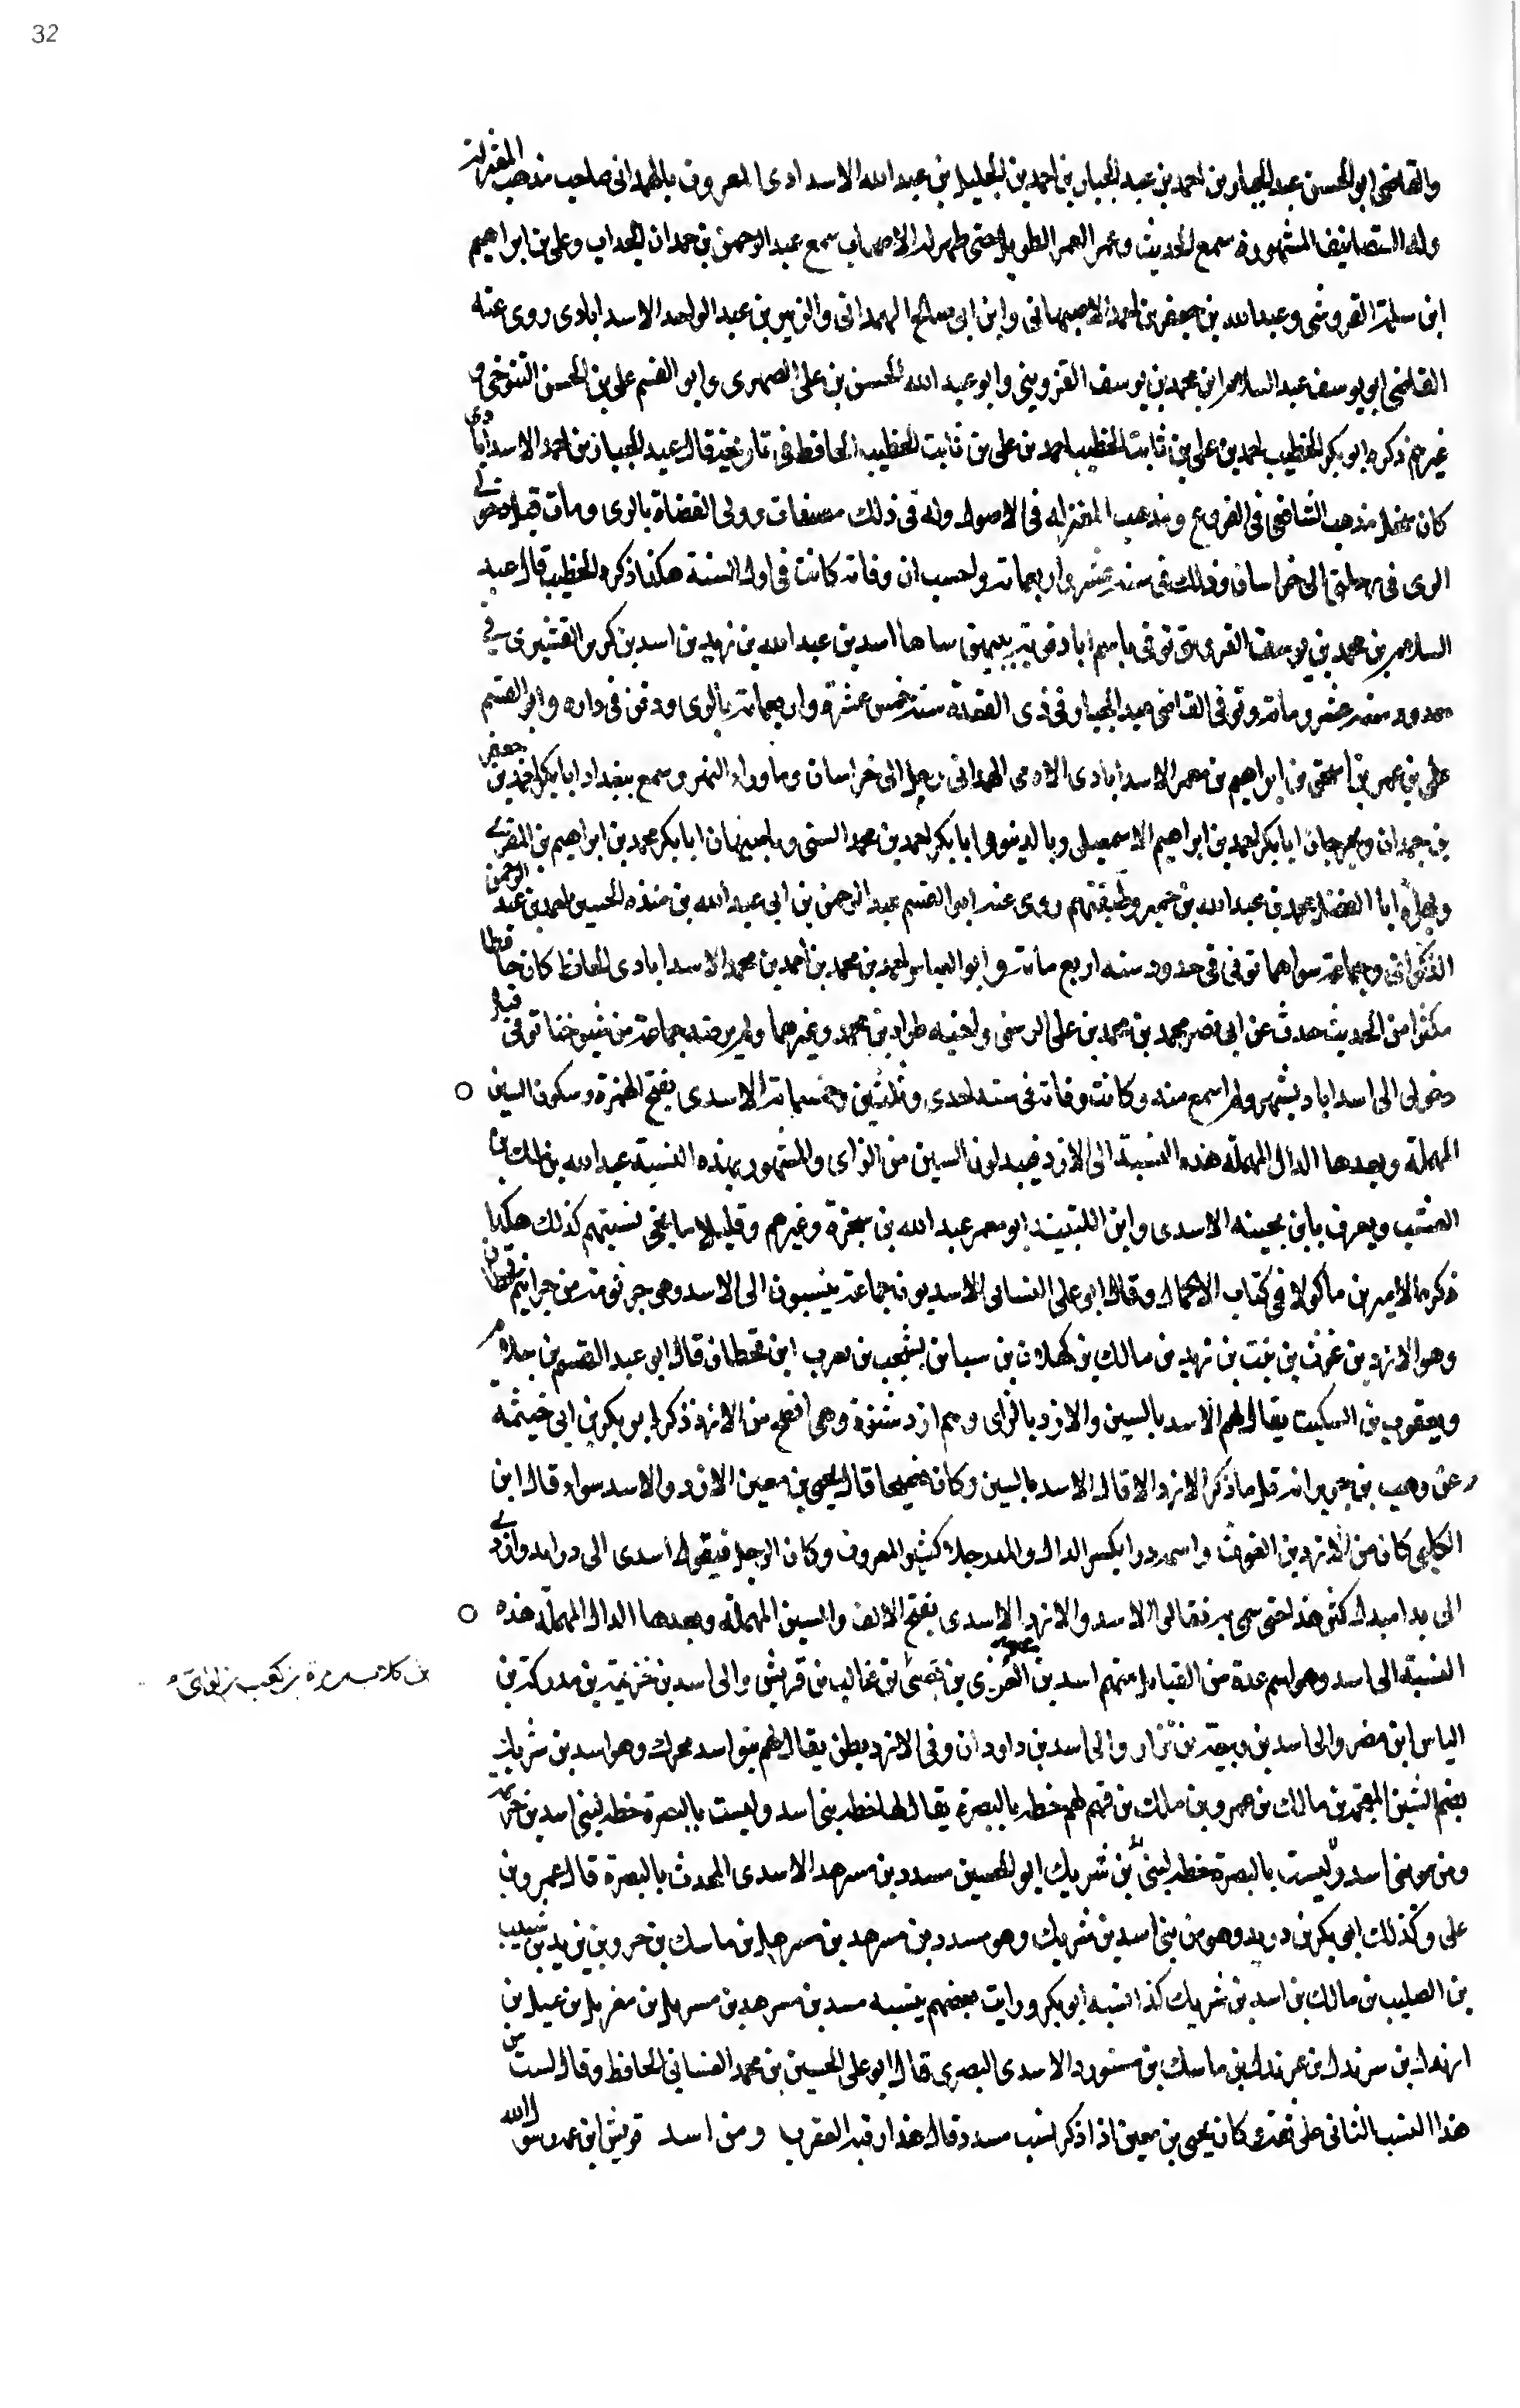 32
والقاضى ابو الحسن عبد الجبار بن احمد بن عبد الجبار بن احمد بن الجليل بن عبد الله الاسدادى المعروف بالهمدانى صاحب مذهب المعتزلة
وله التصانيف المشهورة سمع الحديث وعمر العمر الطويل حتى ظهر له الاصحاب سمع عبد الرحمن بن حمدان الجداب وعلى بن ابراهيم
ابن سلمة القزوينى وعبد الله بن جعفر بن احمد الاصبهانى وابن ابى صالح الهمدانى والزبير بن عبد الواحد الاسدابادى روى عنه
القاضى ابو يوسف عبد السلام ابن محمد بن يوسف القزوينى وابو عبد الله الحسن بن على الصمرى وابو القسم على بن الحسن التنوخى و
غيرهم ذكره ابو بكر الخطيب احمد بن على بن ثابت الخطيب احمد بن على بن ثابت الخطيب الحافظ فى تاريخه قال عبد الجبار بن احمد الاسدابادى
كان ينتحل مذهب الشافعى فى الفروع ومذهب المعتزله فى الاصول وله فى ذلك مصنفات وولى القضاة بالرى ومات قبل دخولى
الرى فى رحلتى الى خراسان وذلك فى سنة خمس واربعمائة واحسب ان وفاته كانت فى اول السنة هكذا ذكره الخطيب قال عبد
السلام بن محمد بن يوسف القزوينى توفى قرية بيهق ساها اسد بن عبد الله بن يزيد بن اسد بن كرز القشيرى فى
حدود سنة عشر ومائة وتوفى القاضى عبد الجبار فى ذى القعدة سنة خمس عشرة واربعمائة بالرى ودفن فى داره وابو القسم
على بن عمر بن اسحق بن ابراهيم بن معمر الاسدابادى الادمى الهمدانى رحل الى خراسان وماوراء النهر وسمع ببغداد ابا بكر احمد بن جعفر
بن حمدان وبجرجان ابا بكر احمد بن ابراهيم الاسمعيلى وبالدينور ابا بكر احمد بن محمد السنى وباصبهان ابا بكر محمد بن ابراهيم بن المقرى
وبهراة ابا الفضل محمد بن عبد الله بن خمير وطبقتهم روى عنه ابو القسم عبد الرحمن بن ابى عبد الله بن منده الحسين احمد بن عبد الرحمن
الذكوانى وجماعة سواهما توفى فى حدود سنه اربع مائة وابو العباس احمد بن محمد بن احمد بن محمد الاسدابادى الحافظ كان حافظا
مكثرا من الحديث حدث عن ابى نصر محمد بن محمد بن على الزينبى واخيه طراد بن محمد وغيرهما ولم من جماعة من شيوخنا توفى قبل
دخولى الى اسداباد بشهر ولم اسمع منه وكانت وفاته فى سنة احدى وثلثين وخمسمائة الاسدى بفتح الهمزة وسكون السين
المهملة وبعدها الدال المهملة هذه النسبة الى الازد فيبدلون السين من الزاى والمشهور بهذه النسبة عبد الله بن ملك بن
القشب ويعرف بابن بحينه الاسدى وابن اللتبية ابو معمر عبد الله بن سخبرة وغيرهم وقليلا ما يجى نسبتهم كذلك هكذا
ذكره الامير بن ماكولا فى كتاب الاكمال وقال ابو على الغسانى الاسديون جماعة ينسبون الى الاسد وهى جرثومة من جراثيم قحطان
وهو الازد بن غوث بن نبت بن زيد بن مالك بن كهلان بن سبا بن يشجب بن يعرب ابن قحطان قال ابو عبد القسم بن سلام
ويعقوب بن السكيت يقال لهم الاسد بالسين والازد بالزاى وهم ازد شنوة وهى افصح من الازد ذكر ابو بكر بن ابى خيثمة
عن وهب بن جرير انه قل ما ذكر الازد الا قال الاسد بالسين وكان فصيحا قال يحيى بن معين الازد والاسد سواء وقال ابن
الكلبى كان من الازد بن الغوث واسمه درا بكسر الدال والمد رجلا كثير المعروف وكان الرجل فيقول اسدى الى درا يدا وازدى
الى يدا مبدل كثر هذا حتى سمى به فقالوا الاسد والازد الاسدى بفتح الالف والسين المهملة وبعدها الدال المهملة هذه
النسبة الى اسد وهو اسم عدة من القبايل منهم اسد بن عبد العزى بن قصى بن غالب من قريش والى اسد بن خزيمة بن مدركة بن
بن كلاب بن مرة بن كعب بن لوى
الياس ابن مضر والى اسد بن ربيعة بن نزار والى اسد بن داودان وفى الازد بطن يقال لهم بنو اسد محرك وهو اسد بن شريك
بضم الشين المعجمة بن مالك بن عمرو بن ملك بن فهم لهم خطة بالبصرة يقال لها خطة بنى اسد وليست بالبصرة خطة لبنى اسد بن خزيمة
ومن بنى اسد وليست بالبصرة خطة لبنى بن شريك ابو الحسين مسدد بن مسرهد الاسدى المحدث بالبصرة قال عمرو بن
على وكذلك ابو بكر بن دريد وهو من بنى اسد بن شريك وهو مسدد بن مسرهد بن مسرهل بن ماسك بن جرو بن يزيد بن شبيب
بن الصليب بن مالك بن اسد بن شريك كذا نسبه ابو بكر ورايت بعضهم ينسبه مسدد بن مسرهد بن مسربل بن مغربل بن
ارندل بن سرندل بن عرندل بن ماسك بن مستورد الاسدى البصرى قال ابو على الحسين بن محمد الغسانى الحافظ وقال لست من
هذا النسب الثانى على ثقة وكان يحيى بن معين اذا ذكر نسب مسدد قال هذا رقية العقرب ومن اسد قريش ابن